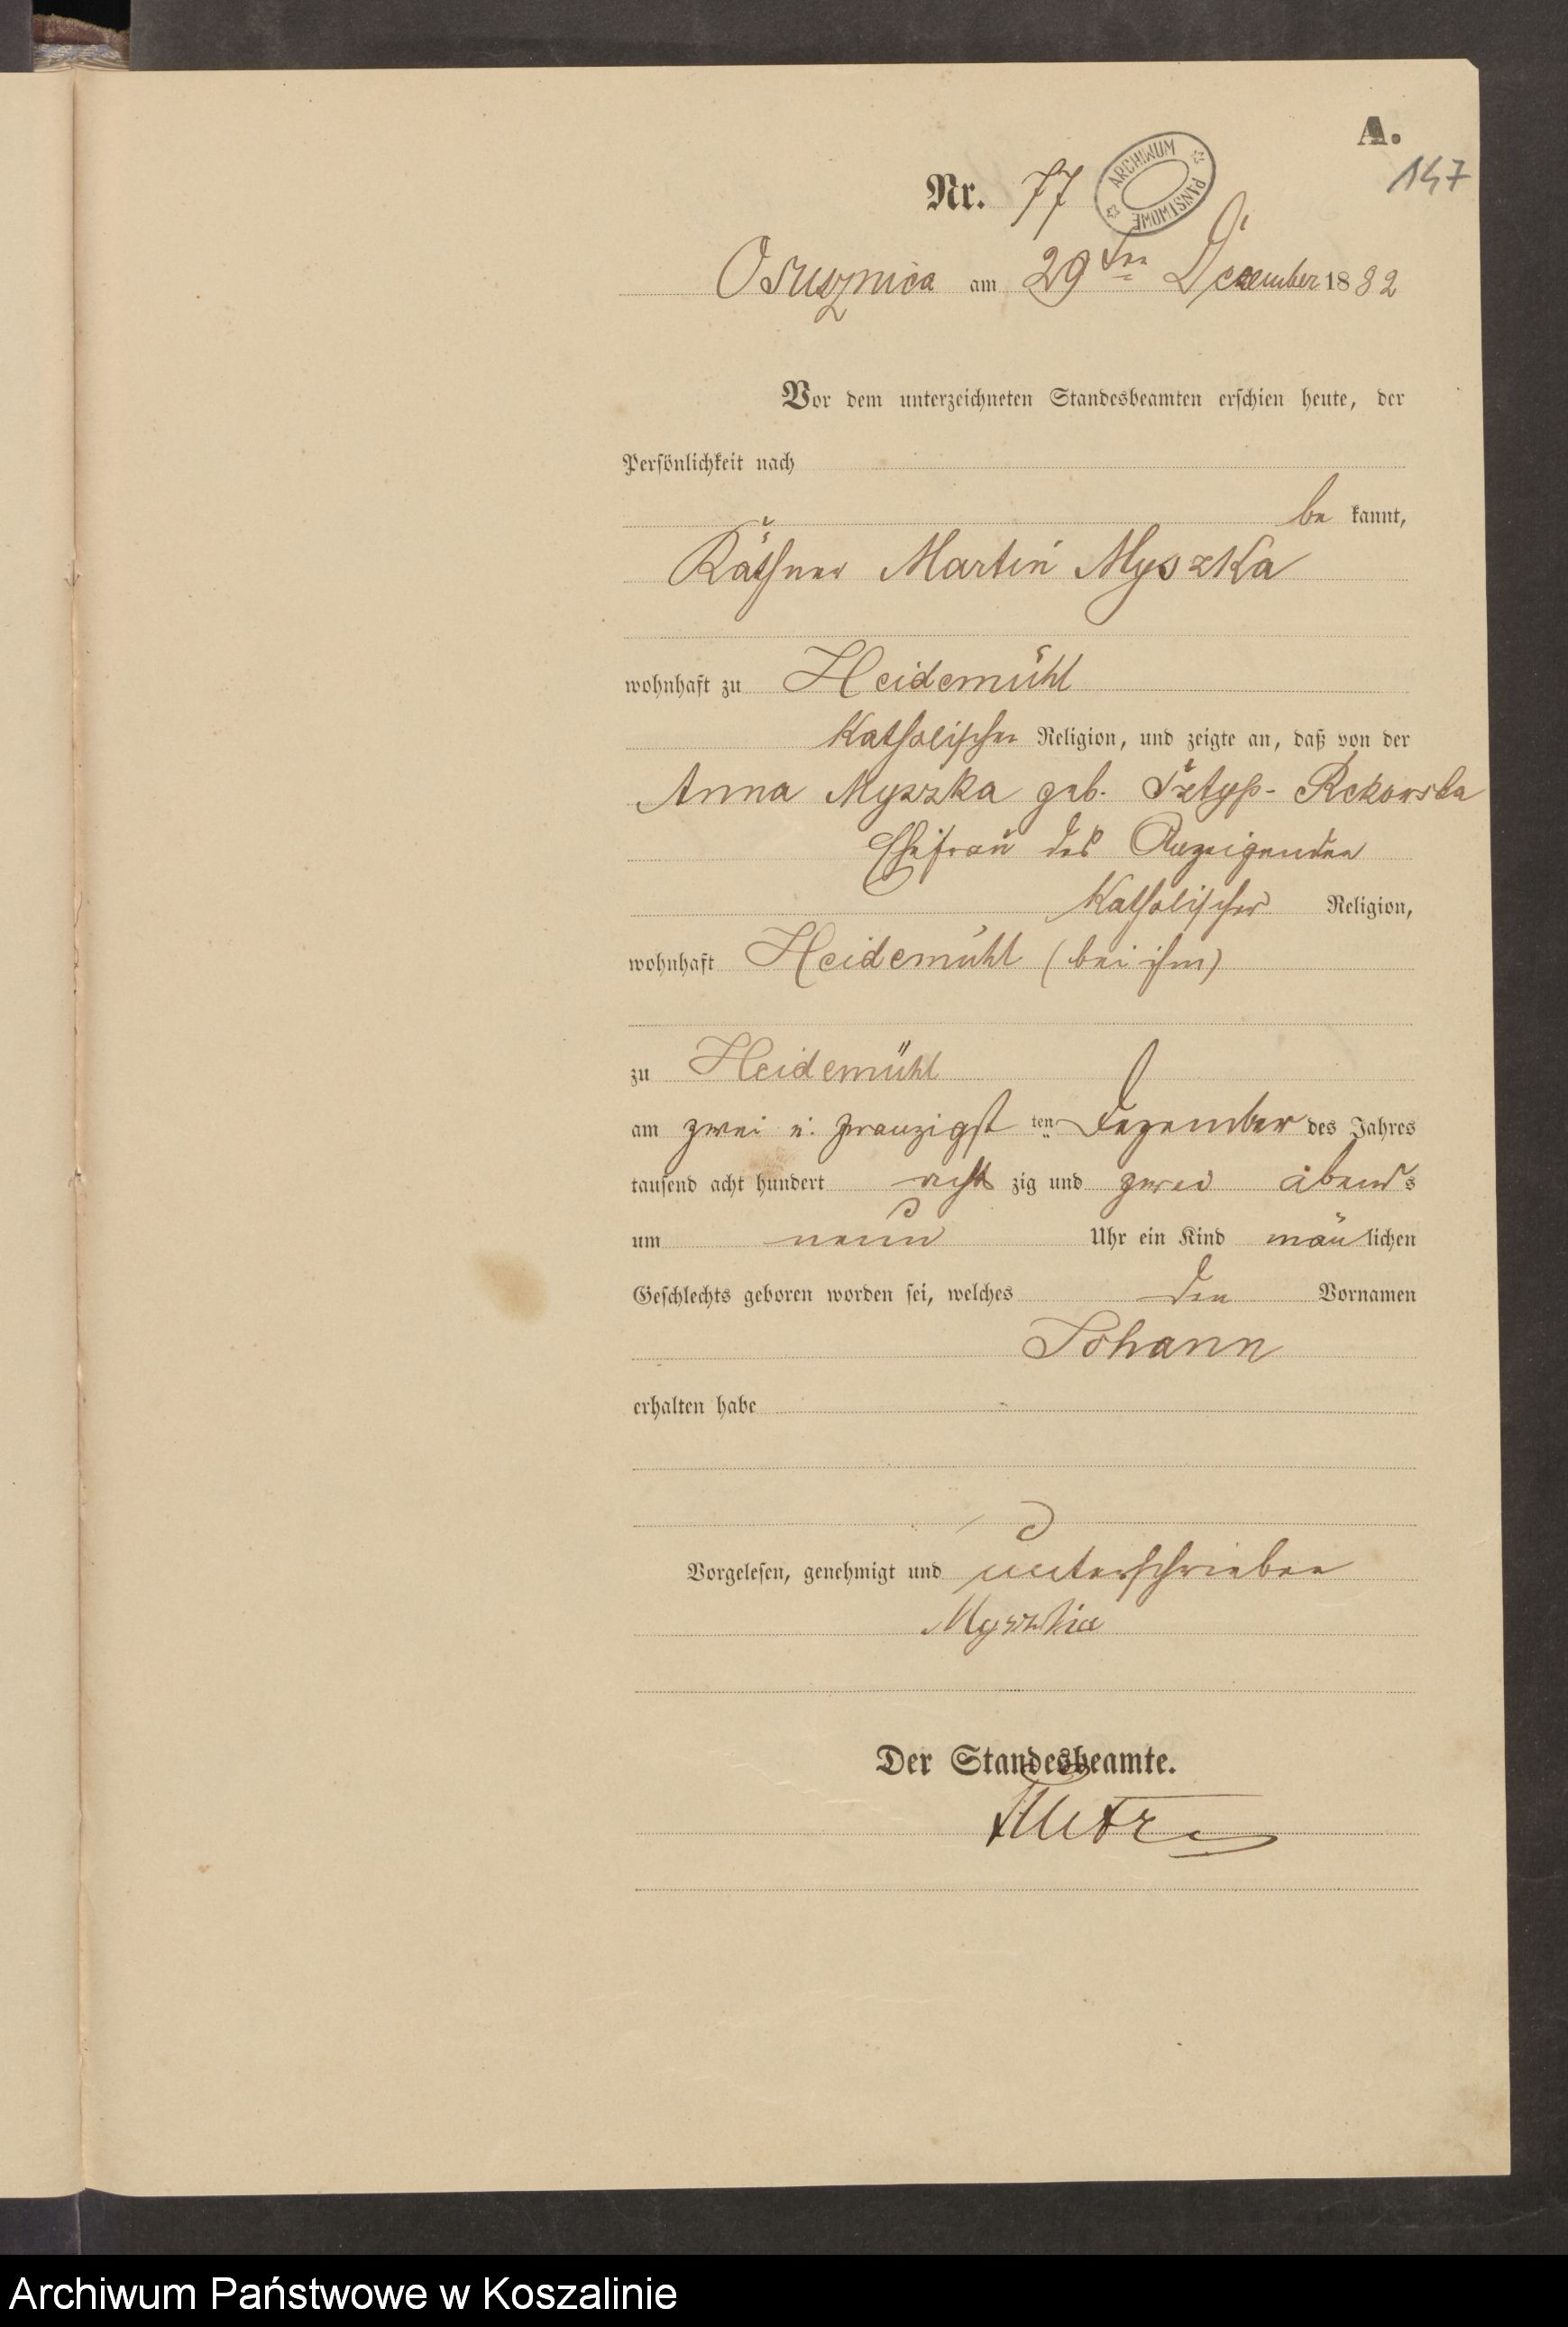 A.
147
Nr. 77
ARCHIWUM PAŃSTWOWE
Osusznica am 29ten Dezember 1882
Vor dem unterzeichneten Standesbeamten erschien heute, der
Persönlichkeit nach
be kannt,
Käthner Martin Myszka
wohnhaft zu Heidemühl
Katholischer Religion, und zeigte an, daß von der
Anna Myszka geb. Sztyp- Rekowska
Ehefrau des Anzeigenden
Katholischer Religion,
wohnhaft Heidemühl (bei ihm)
zu Heidemühl
am zwei u. zwanzigst ten Dezember des Jahres
tausend acht hundert acht zig und zwei abends
um neun Uhr ein Kind mänlichen
Geschlechts geboren worden sei, welches den Vornamen
Johann
erhalten habe
Vorgelesen, genehmigt und unterschrieben
Myszka
Der Standesbeamte.
Archiwum Państwowe w Koszalinie